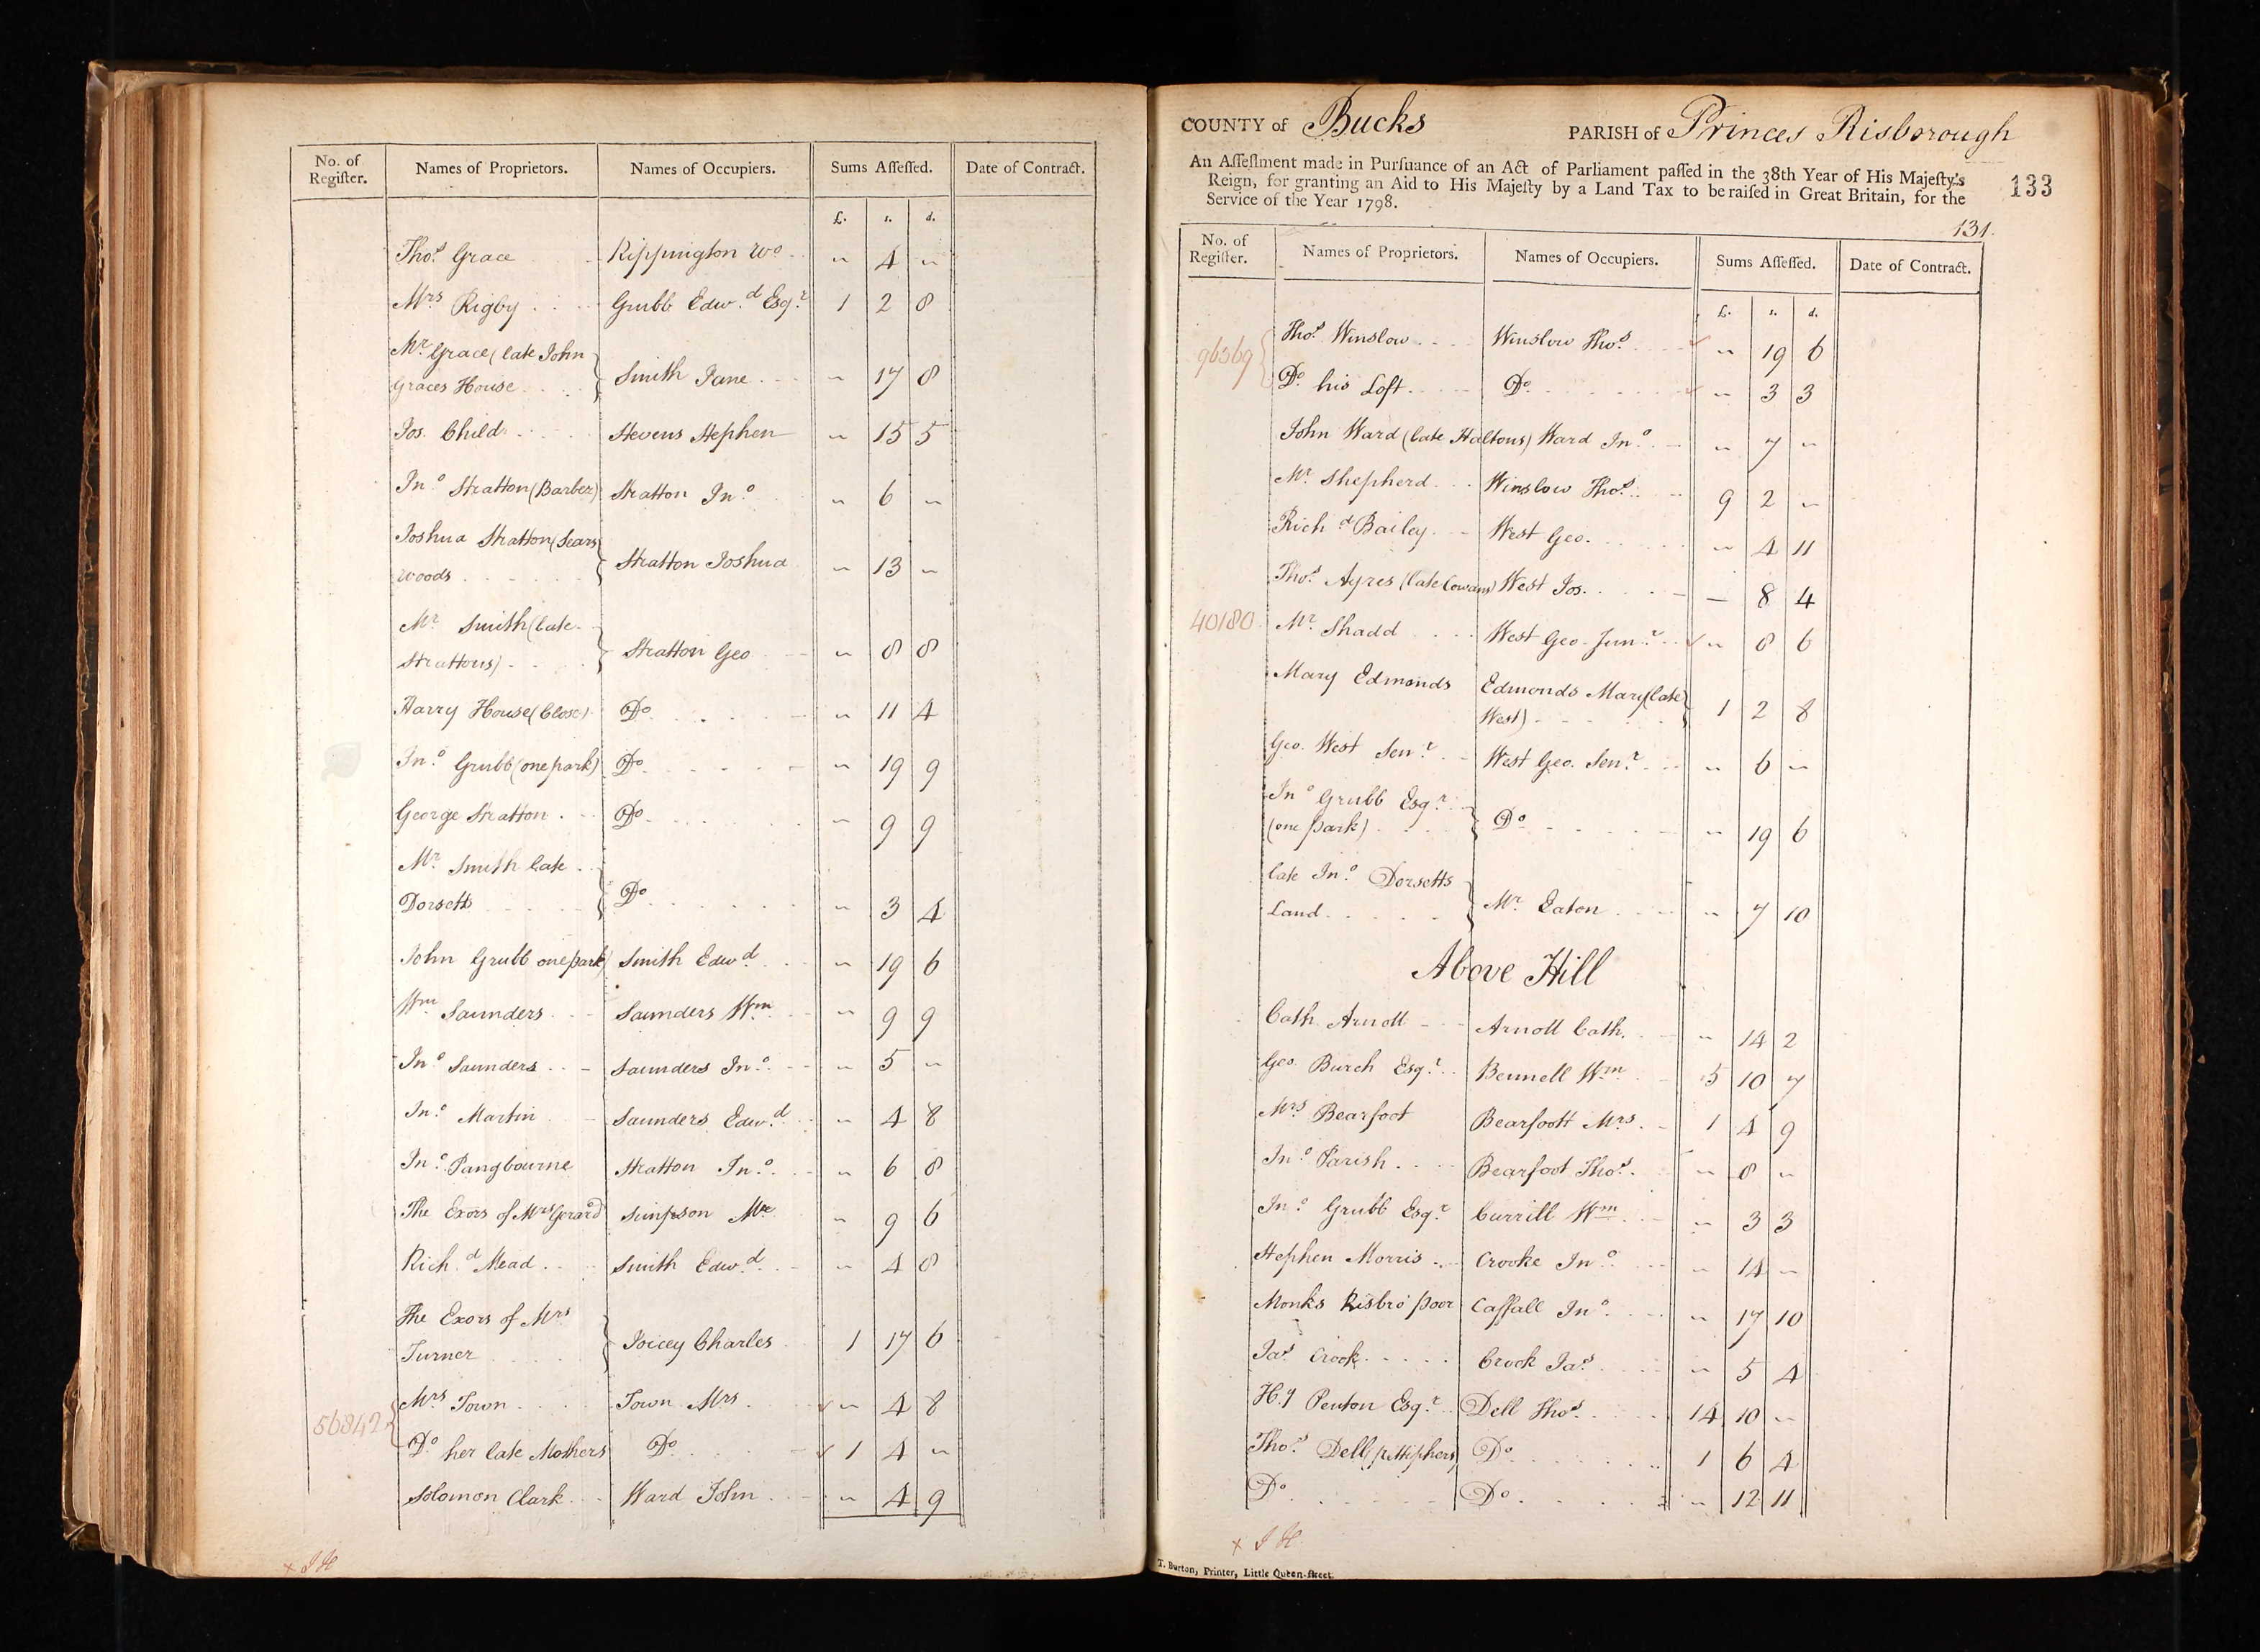 No. of Regiſter. Names of Proprietors. Names of Occupiers. Sums Aſſeſſed. Date of Contract.
£. s. d.
Thos. Grace Rippington Wo " 4 "
Mrs Rigby Grubb Edwd. Esqr. 1 2 8
Mr. Grace (late John
Graces House Smith Jane " 17 8
Jos. Child Stevens Stephen " 15 5
Jno. Stratton (Barber) Stratton Jno. " 6 "
Joshua Stratton (Sears
woods Stratton Joshua " 13 "
Mr Smith (late
Strattons) Stratton Geo " 8 8
Harry House (Close) Do " 11 4
Jno. Grubb (one park) Do " 19 9
George Stratton Do " 9 9
Mr. Smith late
Dorsetts Do " 3 4
John Grubb one park) Smith Edwd " 19 6
Wm Saunders Saunders Wm " 9 9
Jno. Saunders Saunders Jno. " 5 "
Jno. Martin Saunders Edwd. " 4 8
Jno. Pangbourne Stratton Jno. " 6 8
The Exors of Mrs Gerard Simpson " 9 6
Richd. Mead Smith Edwd. " 4 8
The Exors of Mrs
Turner Joicey Charles 1 17 6
56842 Mrs Town Town Mrs " 4 8
Do her late Mothers Do 1 4 "
Solomon Clark Ward John " 4 9
COUNTY of Bucks PARISH of Princes Risborough
An Aſſeſſment made in Purſuance of an Act of Parliament paſſed in the 38th Year of His Majeſty's
Reign, for granting an Aid to His Majeſty by a Land Tax to be raiſed in Great Britain, for the
Service of the Year 1798.
133
131.
No. of Regiſter. Names of Proprietors. Names of Occupiers. Sums Aſſeſſed. Date of Contract.
£. s. d.
96369 Thos. Winslow Winslow Thos. " 19 6
Do. his Loft Do " 3 3
John Ward (late Haltons) Ward Jno. " 7 "
Mr. Shepherd Winslow Thos. 9 2 "
Richd. Bailey West Geo. " 4 11
Thos. Ayres (late Cowans) West Jos. — 8 4
40180 Mr. Shadd West Geo. Junr. " 8 6
Mary Edmonds Edmonds Mary (late
West) 1 2 8
Geo. West Senr. West Geo. Senr. " 6 "
Jno Grubb Esqr.
(one park) Do " 19 6
late Jno. Dorsetts
Land Mr. Eaton " 7 10
Above Hill
Cath. Arnott Arnott Cath. " 14 2
Geo. Burch Esqr. Bennell Wm 5 10 7
Mrs Bearfoot Bearfoott Mrs. 1 4 9
Jno. Parish Bearfoot Thos. " 8 "
Jno. Grubb Esqr. Currill Wm " 3 3
Stephen Morris Crooke Jno. " 14 "
Monks Risbro' poor Caſſall Jno. " 17 10
Jas. Crook Crock Jas. " 5 4
Hy Penton Esqr. Dell Thos. 14 10 "
Thos. Dell Do 1 6 4
Do Do " 12 11
T. Burton, Printer, Little Queen-ſtreet.